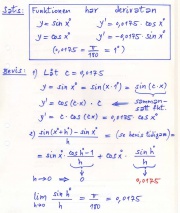 Sats: Funktionen har derivatan
y = sin x° y' = 0,0175 · cos x°
y = cos x° y' = -0,0175 · sin x°
(0,0175 = π/180 = 1°)
Bevis: 1) Låt c = 0,0175
y = sin x° = sin(x · 1°) = sin(c·x)
y' = cos(c·x) · c ← samman-
satt fkt.
y' = c · cos(c·x) = 0,0175 · cos x°
2) sin(x°+h°) - sin x° / h = (se bevis tidigare) =
= sin x° · cos h° - 1 / h + cos x° · sin h° / h
h → 0 ⇒ 0 0,0175
lim h→0 sin h° / h = π/180 = 0,0175